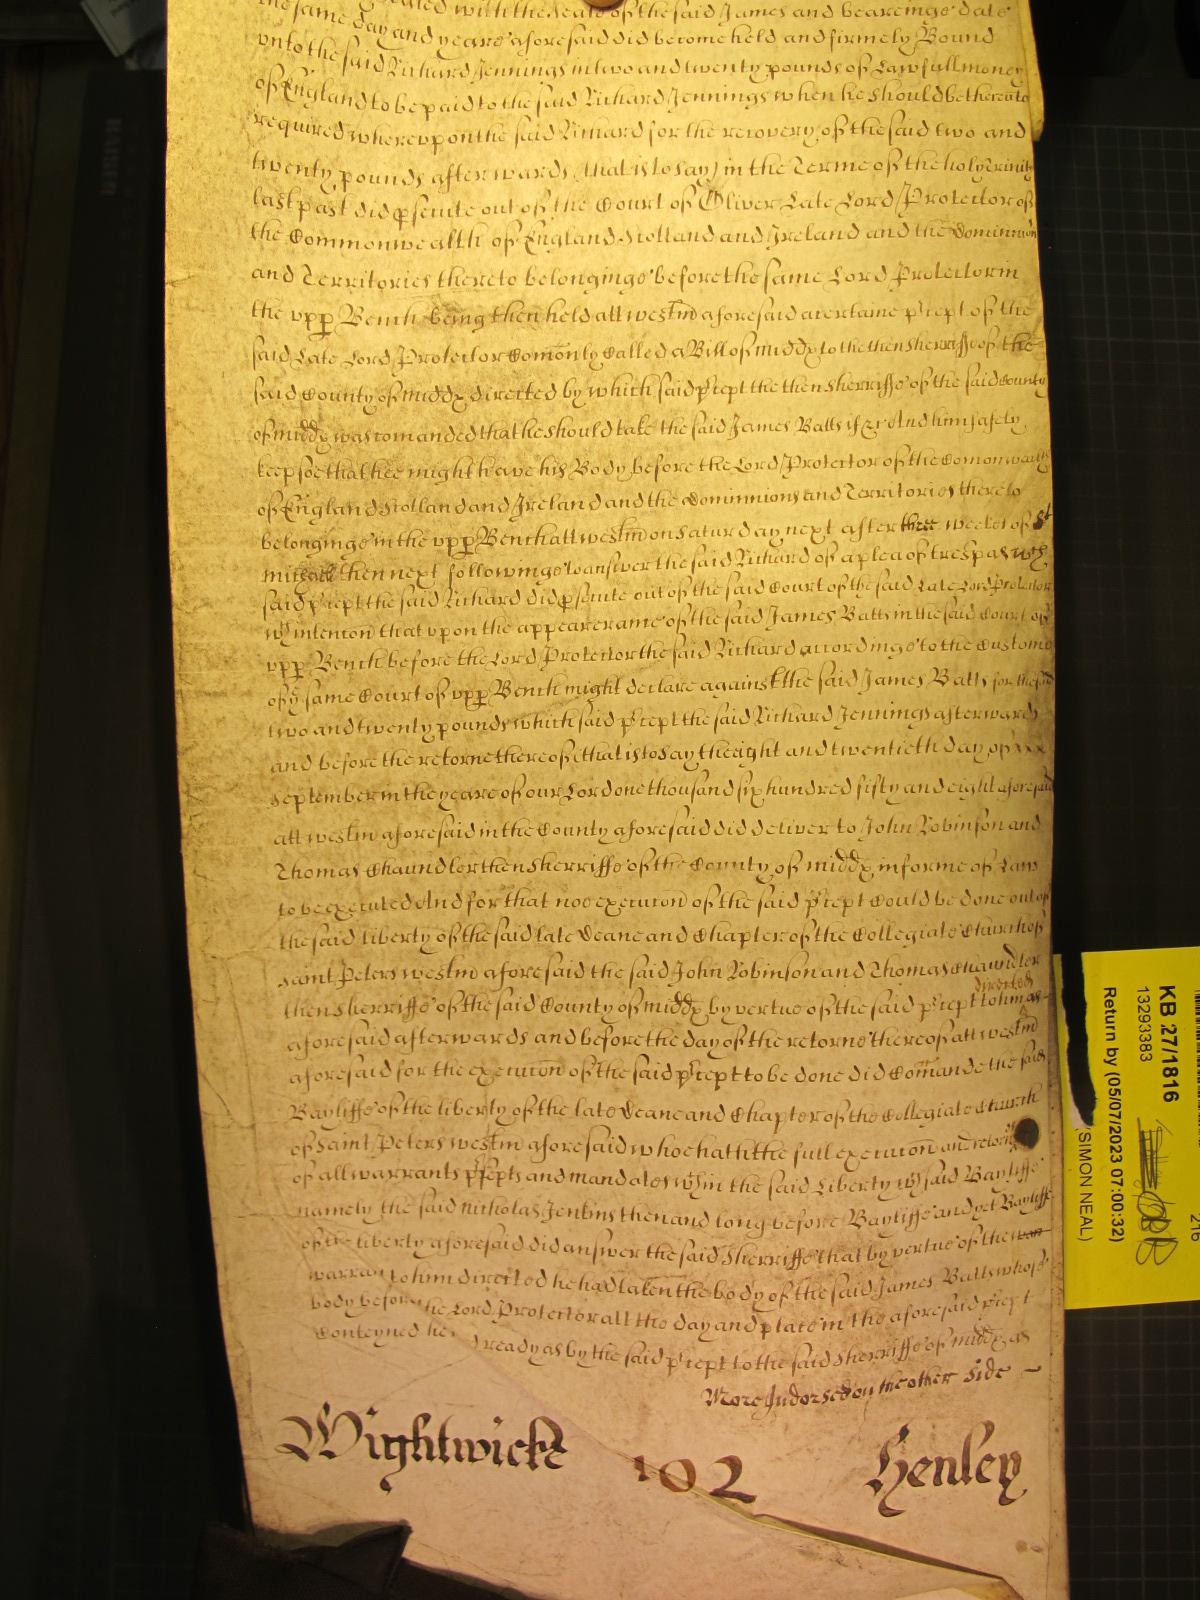 sealed with the seale of the said James and beareinge date
the same day and yeare aforesaid did become held and firmely Bound
vnto the said Richard Jennings in two and twenty pounds of Lawfull money
of England to be paid to the said Richard Jennings when he should be therevnto
required wherevpon the said Richard for the recovery of the said two and
twenty pounds afterwards (that is to say) in the Terme of the holy Trinity
last past did psecute out of the Court of Oliver Late Lord Protector of
the Commonwealth of England Scotland and Ireland and the Dominions
and Territories thereto belonginge before the same Lord Protector in
the vpp Bench being then held att westm aforesaid a certaine pcept of the
said Late Lord Protector Comonly Called a Bill of Middx to the then Sherriffe of the
said County of Middx directed by which said pcept the then Sherriffe of the said County
of Middx was comanded that he should take the said James Batts if &c And him safely
keep soe that hee might have his Body before the Lord Protector of the Comonwealth
of England Scotland and Ireland and the Dominnions and Territories thereto
belonginge in the vpp Bench att westm on Saturday next after three weekes of St
Michaell then next followinge to answer the said Richard of a plea of trespas wch
said pcept the said Richard did psecute out of the said Court of the said Late Lord Protector
wth intencion that vpon the appearerame of the said James Batts in the said Court of
vpp Bench before the Lord Protector the said Richard accordinge to the Custome
of ye same Court of vpp Bench might declare against the said James Batts for the said
two and twenty pounds which said pcept the said Richard Jennings afterwards
and before the retorne thereof (that is to say the eight and twentieth day of
September in the yeare of our Lord one thousand six hundred fifty and eight aforesaid
att westm aforesaid in the County aforesaid did deliver to John Robinson and
Thomas Chaundler then Sherriffe of the County of Middx in forme of Law
to be executed And for that noe execucon of the said pcept Could be done out of
the said liberty of the said late Deane and Chapter of the Collegiate Church of
Saint Peters westm aforesaid the said John Robinson and Thomas Chaundler
then Sherriffe of the said County of Middx by vertue of the said pcept to him directed as
aforesaid afterwards and before the day of the retorne thereof att westm
aforesaid for the execucon of the said pcept to be done did Comande the said
Bayliffe of the liberty of the late Deane and Chapter of the Collegiate Church
of Saint Peters westm aforesaid who hath the full execucon and retorne
of all warrants pcepts and mandates wthin the said Liberty wch said Bayliffe
namely the said Nicholas Jenkins then and long before Bayliffe and yet Bayliffe
of the liberty aforesaid did answer the said Sherriffe that by vertue of the war
warrant to him directed he had taken the body of the said James Batts whose
body before the Lord Protector att the day and place in the aforesaid pcept
Conteyned he ready as by the said pcept to the said Sherriffe of Middx as
More Indorsed on the other side
Wightwicke 102 Henley
KB 27/1816
13293383
Return by (05/07/2023 07:00:32)
(SIMON NEAL)
216